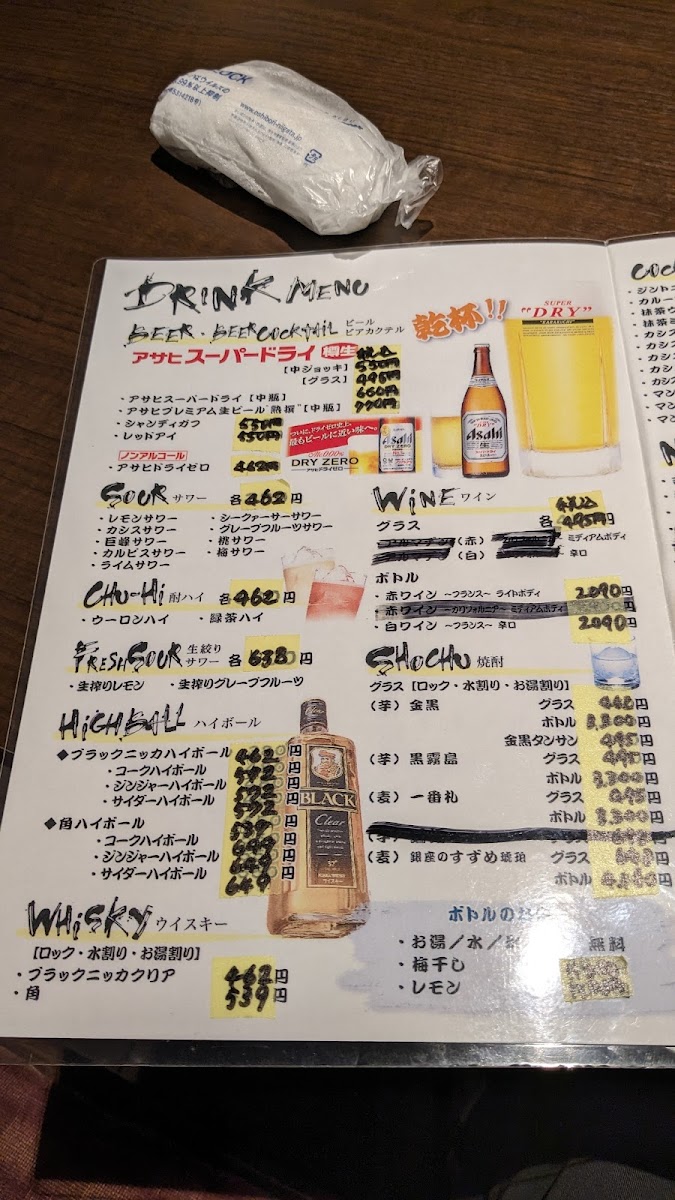 www.oshibori-niigata.jp
DRINK MENU
BEER・BEER COCKTAIL ビール ビアカクテル
乾杯!!
アサヒスーパードライ 樽生 税込
【中ジョッキ】 550円
【グラス】 495円
・アサヒスーパードライ【中瓶】 660円
・アサヒプレミアム生ビール"熟撰"【中瓶】 770円
・シャンディガフ 550円
・レッドアイ 550円
ノンアルコール
・アサヒドライゼロ 462円
ついに、ドライゼロ史上、
最もビールに近い味へ。
Alc.0.00%
DRY ZERO
アサヒドライゼロ
Asahi
SUPER
"DRY"
SOUR サワー 各462円
・レモンサワー ・シークァーサーサワー
・カシスサワー ・グレープフルーツサワー
・巨峰サワー ・桃サワー
・カルピスサワー ・梅サワー
・ライムサワー
CHU-Hi 酎ハイ 各462円
・ウーロンハイ ・緑茶ハイ
FRESH SOUR 生絞りサワー 各638円
・生搾りレモン ・生搾りグレープフルーツ
HiGHBALL ハイボール
◆ブラックニッカハイボール 462円
・コークハイボール 円
・ジンジャーハイボール 円
・サイダーハイボール 円
◆角ハイボール 539円
・コークハイボール 649円
・ジンジャーハイボール 649円
・サイダーハイボール 649円
BLACK
Clear
WHiSKY ウイスキー
【ロック・水割り・お湯割り】
・ブラックニッカクリア 462円
・角 539円
WiNE ワイン 税込
グラス 各495円
(赤) ミディアムボディ
(白) 辛口
ボトル
・赤ワイン ~フランス~ ライトボディ 2090円
赤ワイン ~カリフォルニア~ ミディアムボディ
・白ワイン ~フランス~ 辛口 2090円
SHOCHU 焼酎
グラス【ロック・水割り・お湯割り】
(芋) 金黒 グラス 円
ボトル 3,300円
金黒タンサン 495円
(芋) 黒霧島 グラス 495円
ボトル 3,300円
(麦) 一番札 グラス 495円
ボトル 3,300円
(麦) 銀座のすずめ琥珀 グラス 円
ボトル 円
ボトルのお
・お湯/水/ 無料
・梅干し
・レモン